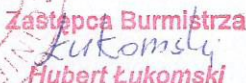 Zastępca Burmistrza
Łukomski
Hubert Łukomski